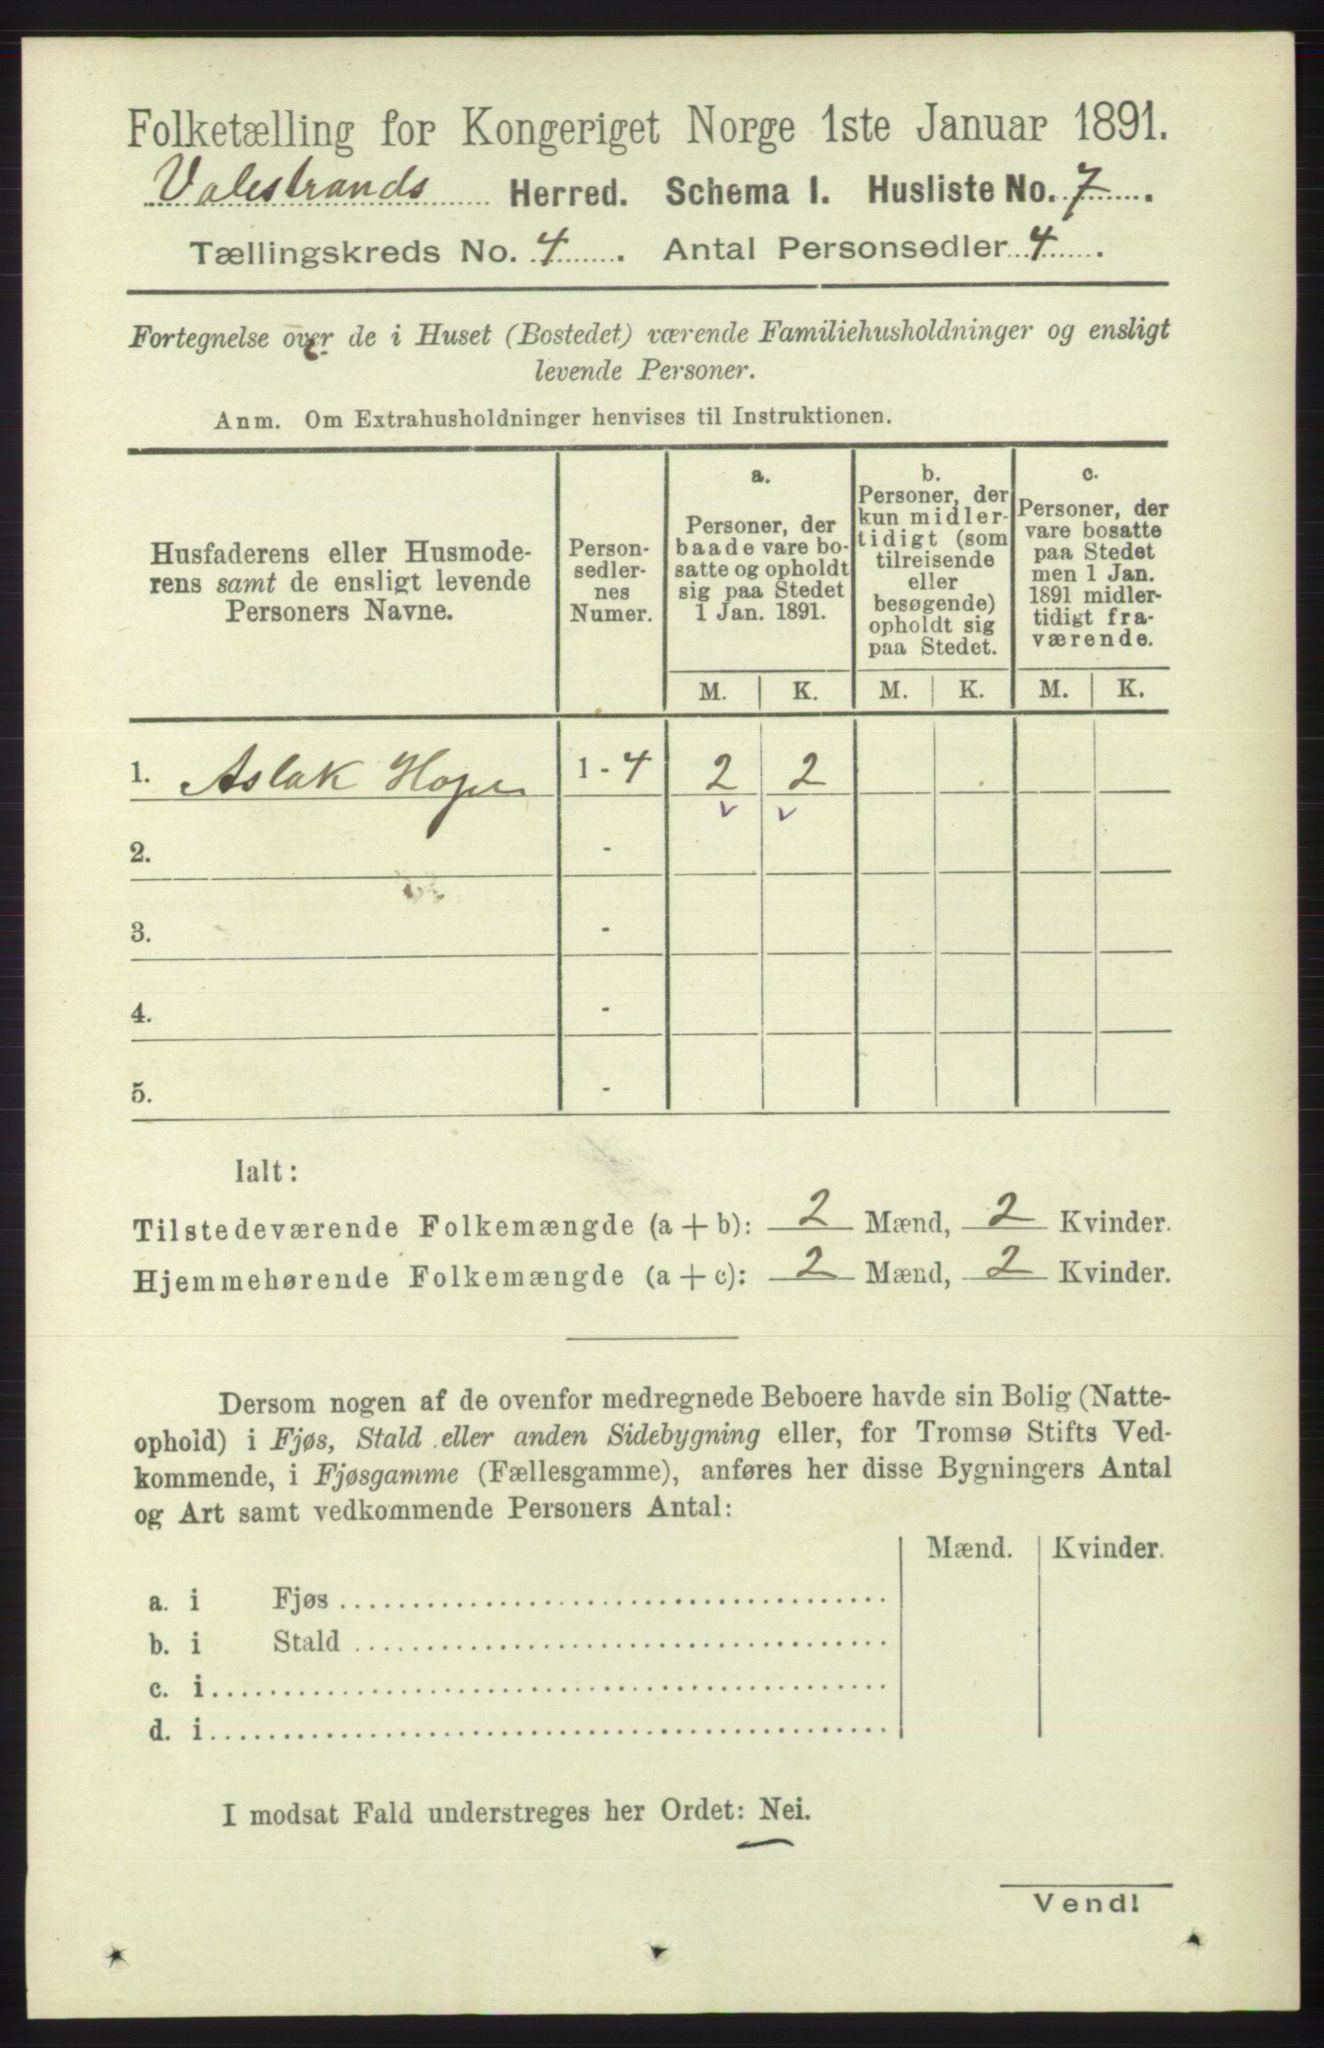 Folketælling for Kongeriget Norge 1ste Januar 1891.
Valestrands Herred. Schema I. Husliste No. 7.
Tællingskreds No. 4. Antal Personsedler 4.
Fortegnelse over de i Huset (Bostedet) værende Familiehusholdninger og ensligt
levende Personer.
Anm. Om Extrahusholdninger henvises til Instruktionen.
Husfaderens eller Husmode-
rens samt de ensligt levende
Personers Navne.
Person-
sedler-
nes
Numer.
a.
Personer, der
baade vare bo-
satte og opholdt
sig paa Stedet
1 Jan. 1891.
b.
Personer, der
kun midler-
tidigt (som
tilreisende
eller
besøgende)
opholdt sig
paa Stedet.
c.
Personer, der
vare bosatte
paa Stedet
men 1 Jan.
1891 midler-
tidigt fra-
værende.
M. K. M. K. M. K.
1. Aslak Hope 1 - 4 2 2
2. -
3. -
4. -
5. -
Ialt:
Tilstedeværende Folkemængde (a + b): 2 Mænd, 2 Kvinder.
Hjemmehørende Folkemængde (a + c): 2 Mænd, 2 Kvinder.
Dersom nogen af de ovenfor medregnede Beboere havde sin Bolig (Natte-
ophold) i Fjøs, Stald eller anden Sidebygning eller, for Tromsø Stifts Ved-
kommende, i Fjøsgamme (Fællesgamme), anføres her disse Bygningers Antal
og Art samt vedkommende Personers Antal:
Mænd. Kvinder.
a. i Fjøs
b. i Stald
c. i
d. i
I modsat Fald understreges her Ordet: Nei.
Vend!